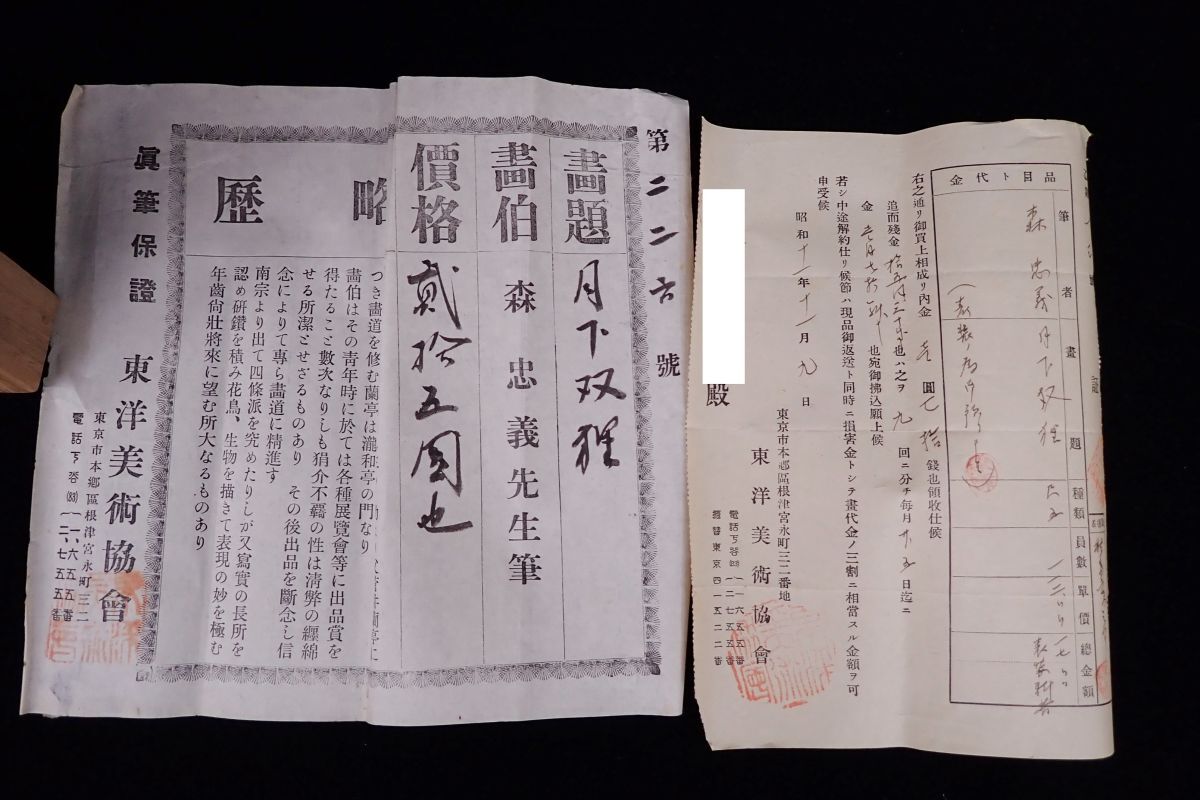 第二二六號
畫題
月下双狸
畫伯
森忠義先生筆
價格
貳拾五圓也
略歷
つき畫道を修む蘭亭は瀧和亭の門なり
畫伯はその青年時に於ては各種展覽會等に出品賞を
得たること數次なりしも狷介不羈の性は清弊の纒綿
せる所潔とせざるものあり その後出品を斷念し信
念によりて專ら畫道に精進す
南宗より出て四條派を究めたりしが又寫實の長所を
認め研鑽を積み花鳥、生物を描きて表現の妙を極む
年齒尙壯將來に望む所大なるものあり
眞筆保證
東洋美術協會
東京市本鄕區根津宮永町三二
電話下谷(83)一一、六五五番
二、七五五番
品目ト代金
筆者
畫題
種類
員數
單價
總金額
森忠義
月下双狸
尺五
一
右之通リ御買上相成リ內金壱圓七拾錢也領收仕候
追而殘金拾五円三十銭也ハ之ヲ九回ニ分チ每月廿五日迄ニ
金壱円七拾銭也宛御拂込願上候
若シ中途解約仕リ候節ハ現品御返送ト同時ニ損害金トシテ畫代金ノ三割ニ相當スル金額ヲ可
申受候
昭和十一年十一月九日
東京市本鄕區根津宮永町三二番地
東洋美術協會
電話下谷(83)一一六五五番
一二七五五番
振替東京四一五二二番
殿